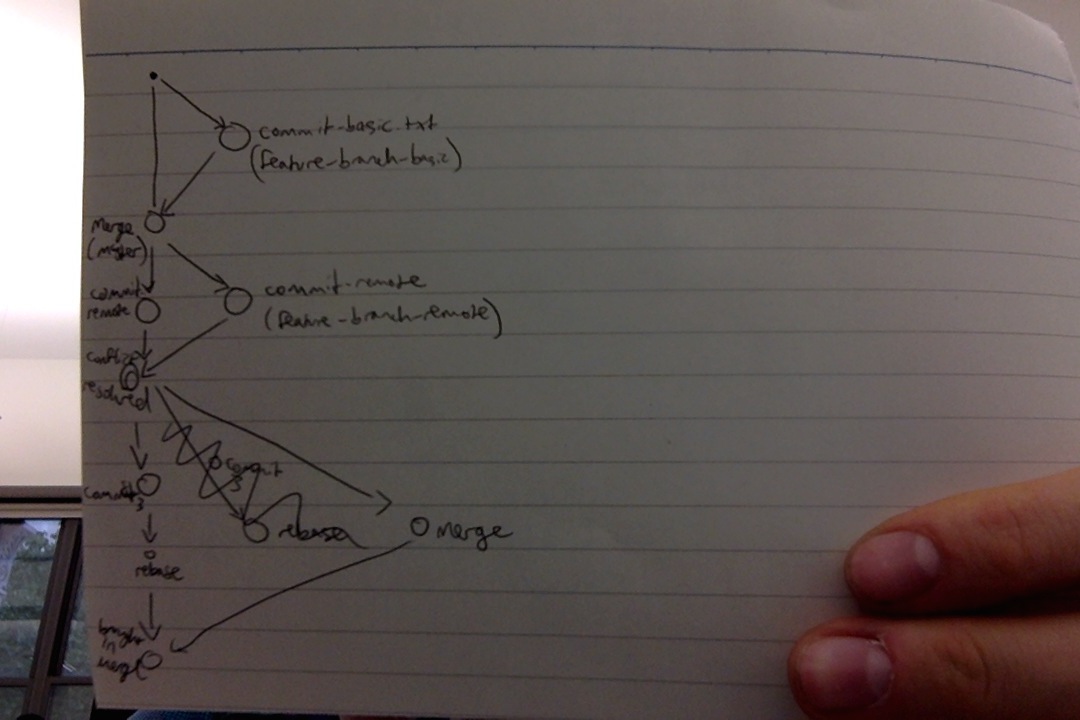 commit-basic.txt
(feature-branch-basic)
Merge
(master)
commit
remote
commit-remote
(feature-branch-remote)
conflict
resolved
commit
3
commit
3
rebase
merge
rebase
brought
in
merge